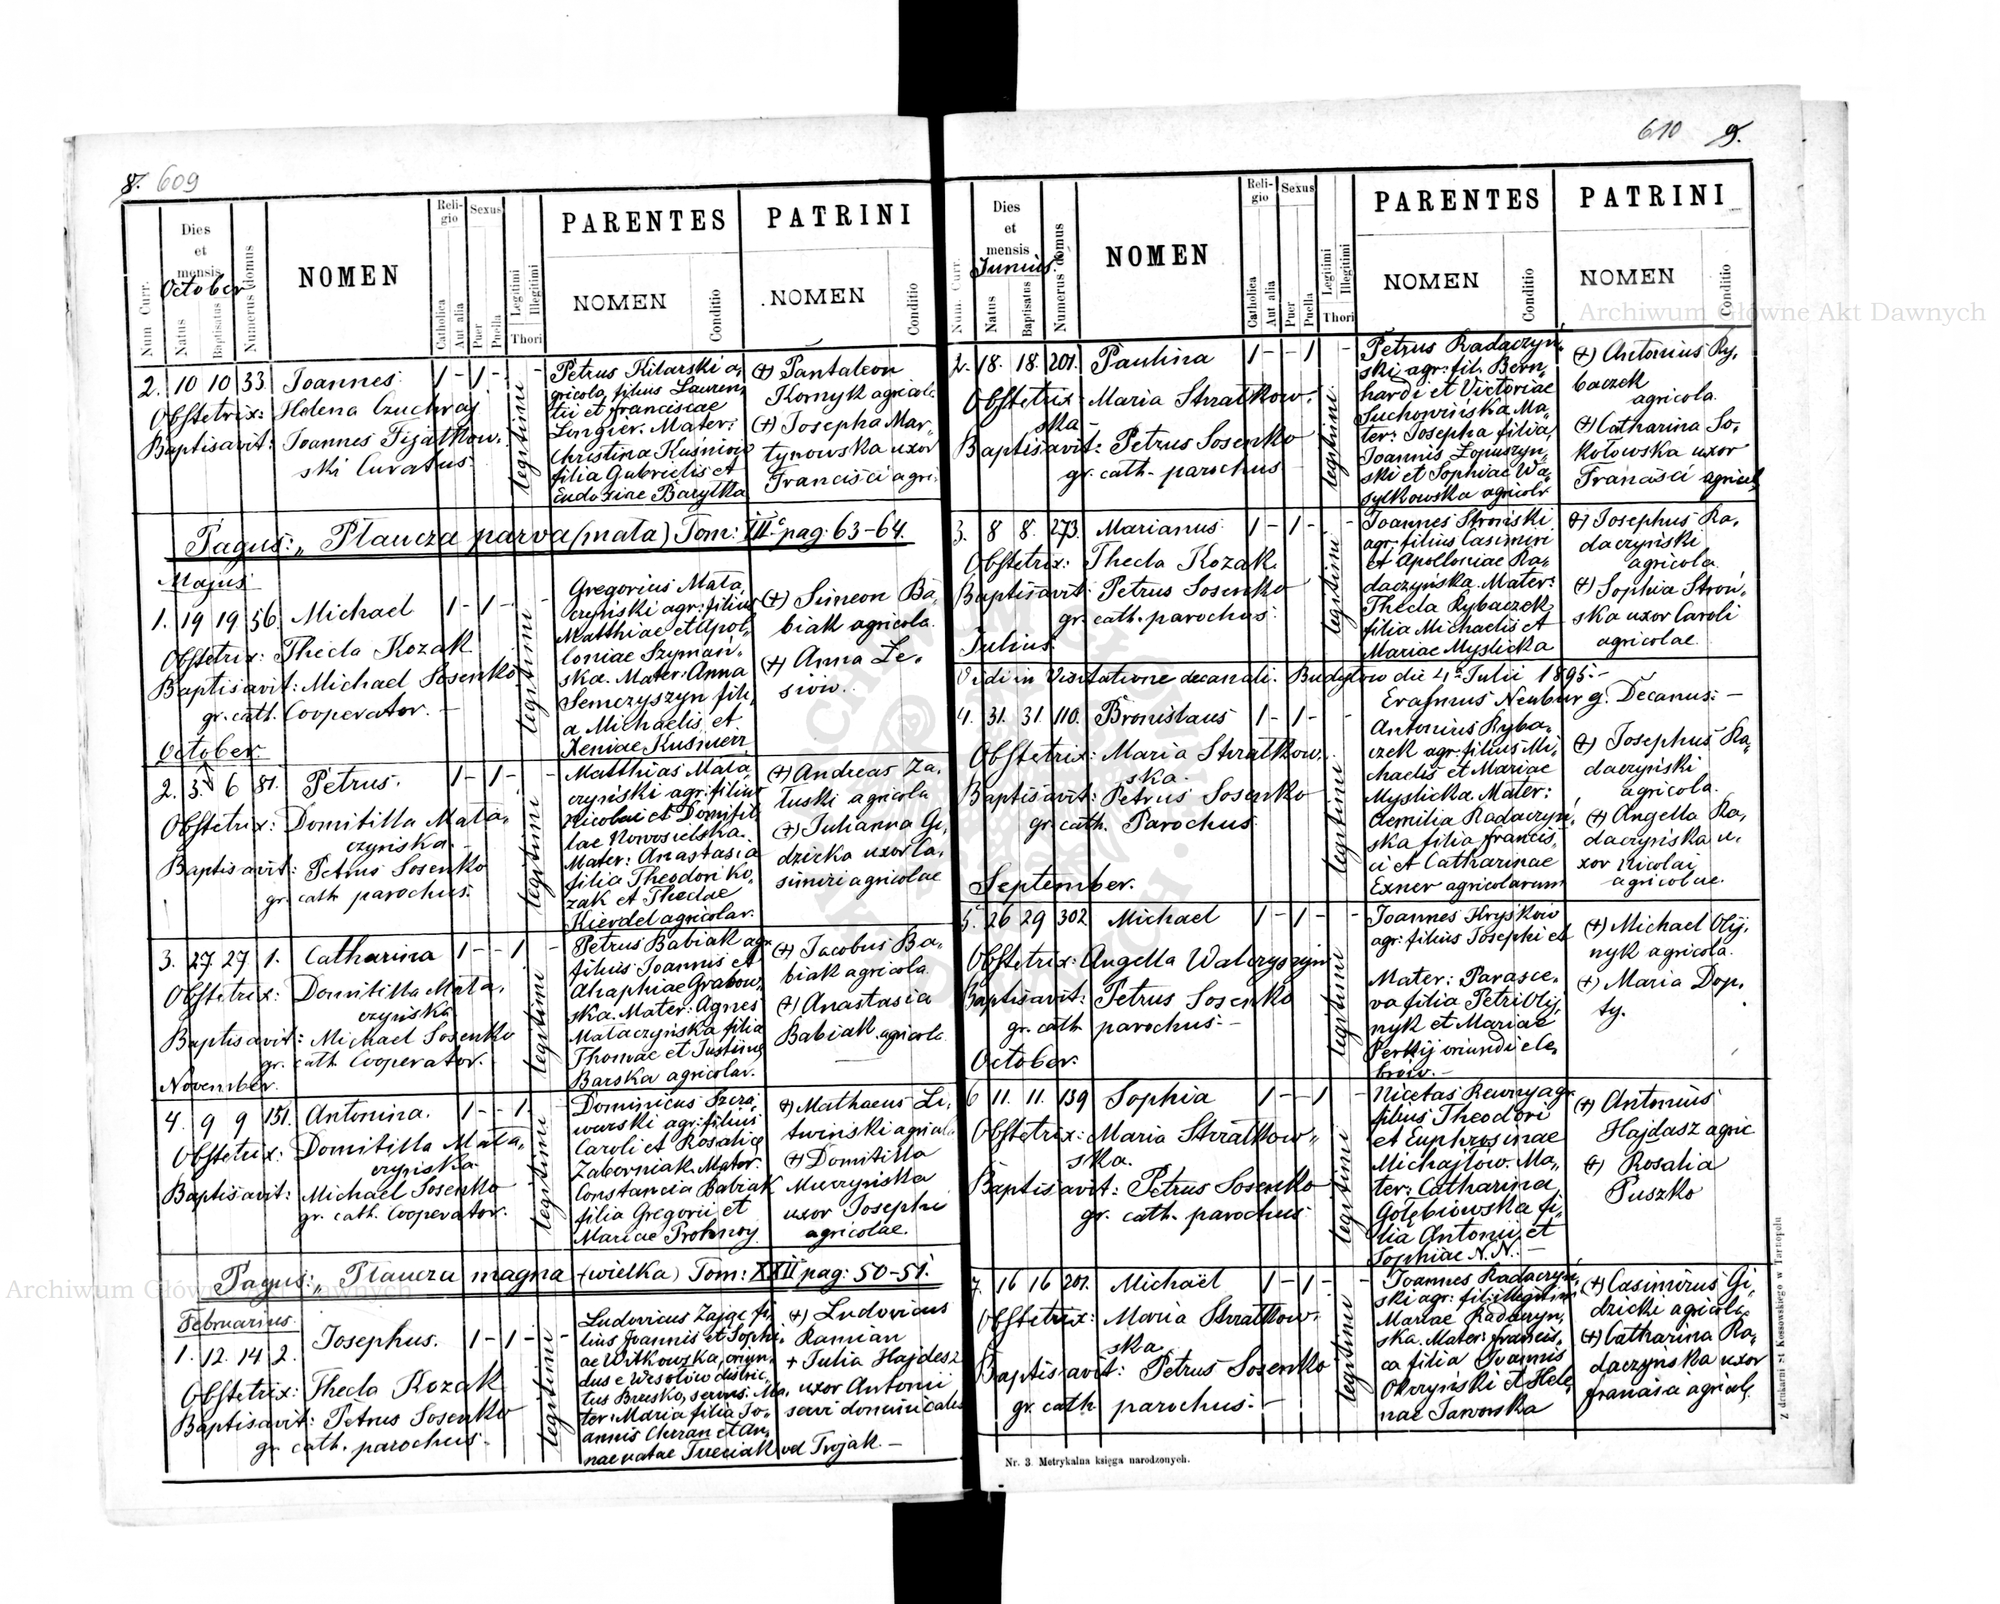 8. 609
Num Curr.
Dies et mensis
October
Natus
Baptisatus
Numerus domus
NOMEN
Religio
Catholica
Aut alia
Sexus
Puer
Puella
Legitimi
Illegitimi
Thori
PARENTES
NOMEN
Conditio
PATRINI
NOMEN
Conditio
2. 10 10 33 Joannes 1 - 1 - -
Obstetrix: Helena Czuchraj
Baptisavit: Joannes Fijałkow-
ski Curatus
legitimi
Petrus Kilarski a-
gricola, filius Lauren-
tii et Franciscae
Longier. Mater:
Christina Kuśnierz
filia Gabrielis et
Eudoxiae Baryłka
(+) Pantaleon
Kornyk agricola
(+) Josepha Mar-
tynowska uxor
Francisci agri-
Pagus: „Płaucza parva (mała) Tom: III. pag: 63-64.
Majus
1. 19 19 56. Michael 1 - 1 -
Obstetrix: Thecla Kozak
Baptisavit: Michael Sosenko
gr. cath. Cooperator. -
legitimi
Gregorius Mała-
czyński agr: filius
Matthiae et Apol-
loniae Szymań-
ska. Mater: Anna
Semczyszyn fili-
a Michaelis et
Xeniae Kuśnierz
(+) Simeon Ba-
biak agricola.
(+) Anna Le-
siów.
October
2. 5 6 81. Petrus. 1 - 1 - -
Obstetrix: Domitilla Mała-
czyńska. -
Baptisavit: Petrus Sosenko
gr. cath parochus.
legitimi
Matthias Mała-
czyński agr: filius
Nicolai et Domitil-
lae Nowosielska.
Mater: Anastasia
filia Theodori Ko-
zak et Theclae
Kierdel agricolar.
(+) Andreas Za-
łuski agricola
(+) Julianna Gi-
dzicka uxor Ca-
simiri agricolae
3. 27 27 1. Catharina 1 - - 1 -
Obstetrix: Domitilla Mała-
czyńska
Baptisavit: Michael Sosenko
gr. cath Cooperator.
legitimi
Petrus Babiak agr
filius Joannis et
Ahaphiae Grabow-
ska. Mater: Agnes
Małaczyńska filia
Thomae et Justinae
Barska agricolar.
(+) Jacobus Ba-
biak agricola.
(+) Anastasia
Babiak agricola
November.
4. 9 9 151. Antonina. 1 - - 1 -
Obstetrix: Domitilla Mała-
czyńska.
Baptisavit: Michael Sosenko
gr. cath. Cooperator.
legitimi
Dominicus Szera-
warski agr: filius
Caroli et Rosaliae
Zaborniak. Mater:
Constancia Babiak
filia Gregorii et
Mariae Prohnoy
(+) Mathaeus Li-
twiński agricola
(+) Domitilla
Murzyńska
uxor Josephi
agricolae.
Pagus: „Płaucza magna (wielka) Tom: XXII pag: 50-51.
Februarius
1. 12. 14 2. Josephus. 1 - 1 - -
Obstetrix: Thecla Kozak
Baptisavit: Petrus Sosenko
gr. cath. parochus. -
legitimi
Ludovicus Zając fi-
lius Joannis et Sophi-
ae Witkowska, oriun-
dus e Wesołów distric-
tus Brzesko, servus. Ma-
ter: Maria filia Jo-
annis Chrzan et An-
nae natae Trzeciak vel Trojak. -
(+) Ludovicus
Ramian
+ Julia Hajdesz
uxor Antonii
servi dominicalis
610 9.
Num. Curr.
Dies et mensis
Junius
Natus
Baptisatus
Numerus domus
NOMEN
Religio
Catholica
Aut alia
Sexus
Puer
Puella
Legitimi
Illegitimi
Thori
PARENTES
NOMEN
Conditio
PATRINI
NOMEN
Conditio
2. 18. 18. 201. Paulina 1 - - 1 -
Obstetrix: Maria Strzałkow-
ska -
Baptisavit: Petrus Sosenko
gr. cath. parochus
legitimi
Petrus Radaczyń-
ski agr: fil. Bern-
hardi et Victoriae
Suchowińska Ma-
ter: Josepha filia,
Joannis Łopuszyń-
ski et Sophiae Wa-
sylkowska agricolr
(+) Antonius Ry-
baczek
agricola.
(+) Catharina So-
kołowska uxor
Francisci agricol.
3. 8 8. 273. Marianus 1 - 1 - -
Obstetrix: Thecla Kozak
Baptisavit: Petrus Sosenko
gr. cath. parochus:
legitimi
Joannes Stroński
agr: filius Casimiri
et Apolloniae Ra-
daczyńska. Mater:
Thecla Rybaczek
filia Michaelis et
Mariae Myslicka
(+) Josephus Ra-
daczyński
agricola.
(+) Sophia Stroń-
ska uxor Caroli
agricolae.
Julius.
Vidi in Visitatione decanali. Budyłów die 4a Julii 1895.-
Erasmus Neuburg. Decanus: -
4. 31. 31. 110. Bronislaus 1 - 1 - -
Obstetrix: Maria Strzałkow-
ska.
Baptisavit: Petrus Sosenko
gr. cath. Parochus.
legitimi
Antonius Ryba-
czek agr: filius Mi-
chaelis et Mariae
Myslicka. Mater:
Aemilia Radaczyń-
ska filia Francis-
ci et Catharinae
Exner agricolarum
(+) Josephus Ra-
daczyński
agricola.
(+) Angella Ra-
daczyńska u-
xor Nicolai
agricolae.
September.
5. 26 29 302 Michael 1 - 1 - -
Obstetrix: Angella Walczyszyn
Baptisavit: Petrus Sosenko
gr. cath parochus. -
legitimi
Joannes Hryśków
agr: filius Josephi et
Mater: Parasce-
va filia Petri Olij-
nyk et Mariae
Perkij oriundi e Ce-
brów. -
(+) Michael Olij-
nyk agricola.
(+) Maria Dop-
ty.
October.
6 11. 11. 139 Sophia 1 - - 1 -
Obstetrix: Maria Strzałkow-
ska.
Baptisavit: Petrus Sosenko
gr. cath. parochus
legitimi
Nicetas Rewny agr
filius Theodori
et Euphrosinae
Michajłów. Ma-
ter: Catharina
Gołębiowska fi-
lia Antonii et
Sophiae N. N. -
(+) Antonius
Hajdasz agric
(+) Rosalia
Puszko
7. 16 16 201. Michael 1 - 1 - -
Obstetrix: Maria Strzałkow-
ska.
Baptisavit: Petrus Sosenko
gr. cath parochus. -
legitimi
Joannes Radaczyń-
ski agr: fil: illegitimi
Mariae Radaczyń-
ska. Mater: Francis-
ca filia Joannis
Okrzyński et Hele-
nae Jaworska
(+) Casimirus Gi-
dzicki agricola
(+) Catharina Ra-
daczyńska uxor
Francisci agricol.
Nr. 3. Metrykalna księga narodzonych.
Z drukarni St. Kossowskiego w Tarnopolu
Archiwum Główne Akt Dawnych
Archiwum Główne Akt Dawnych